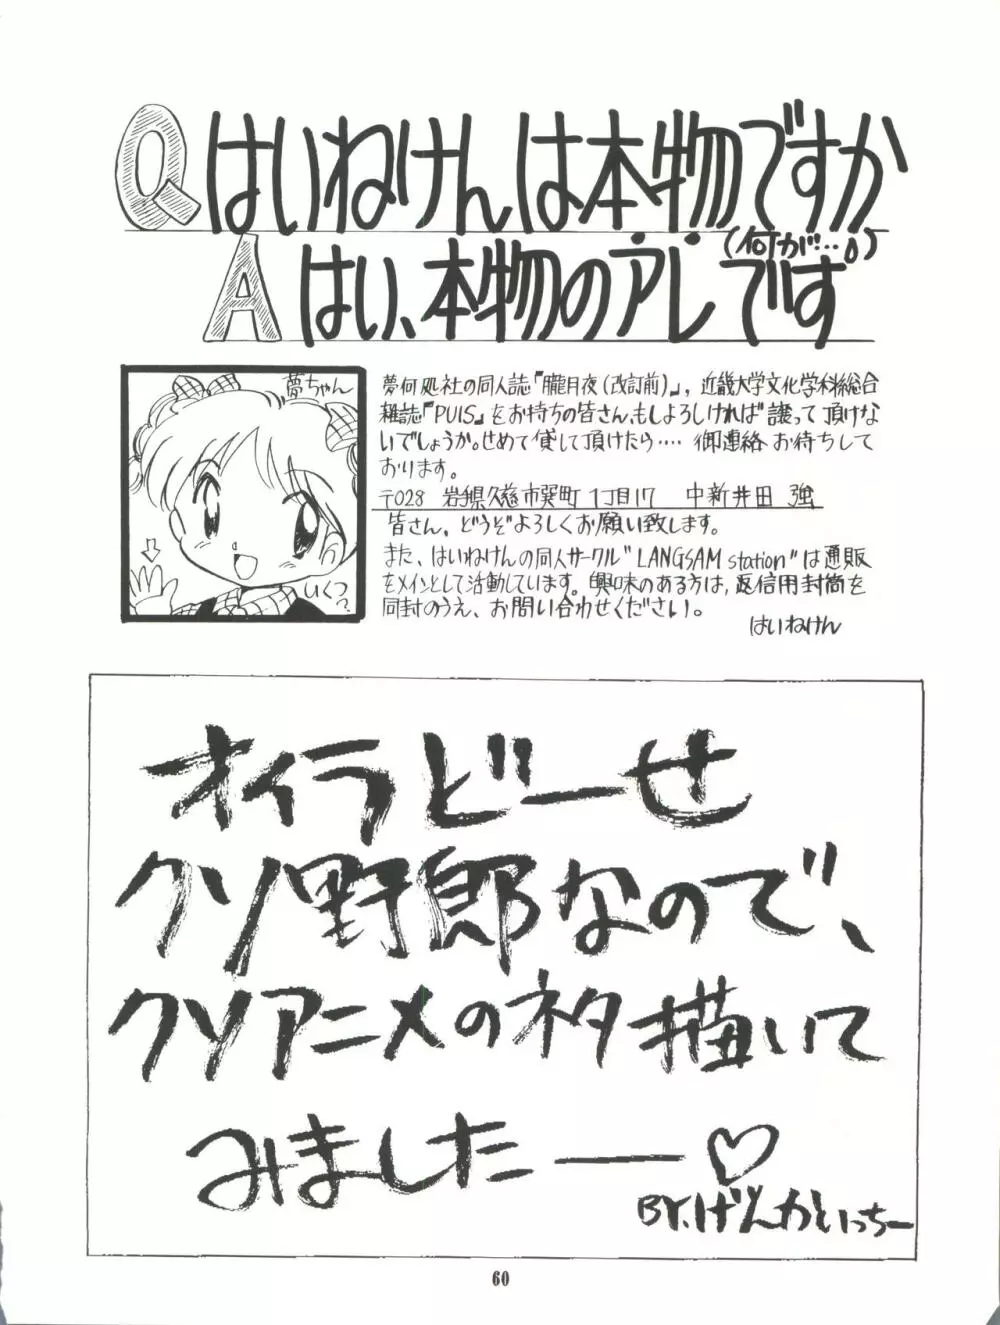 Q はいねけんは本物ですか
(何が…。)
A はい、本物のアレです
夢ちゃん
いくつ?
夢何処社の同人誌『朧月夜(改訂前)』, 近畿大学文化学科総合
雑誌『PUIS』をお持ちの皆さん、もしよろしければ譲って頂けな
いでしょうか。せめて貸して頂けたら…‥ 御連絡お待ちして
おります。
〒028 岩手県久慈市巽町1丁目17 中新井田 強
皆さん、どうぞよろしくお願い致します。
また、はいねけんの同人サークル"LANGSAM station"は通販
をメインとして活動しています。興味のある方は, 返信用封筒を
同封のうえ、お問い合わせください。
はいねけん
オイラどーせ
クソ野郎なので、
クソアニメのネタ描いて
みました──♡
BY.げんかいっちー
60